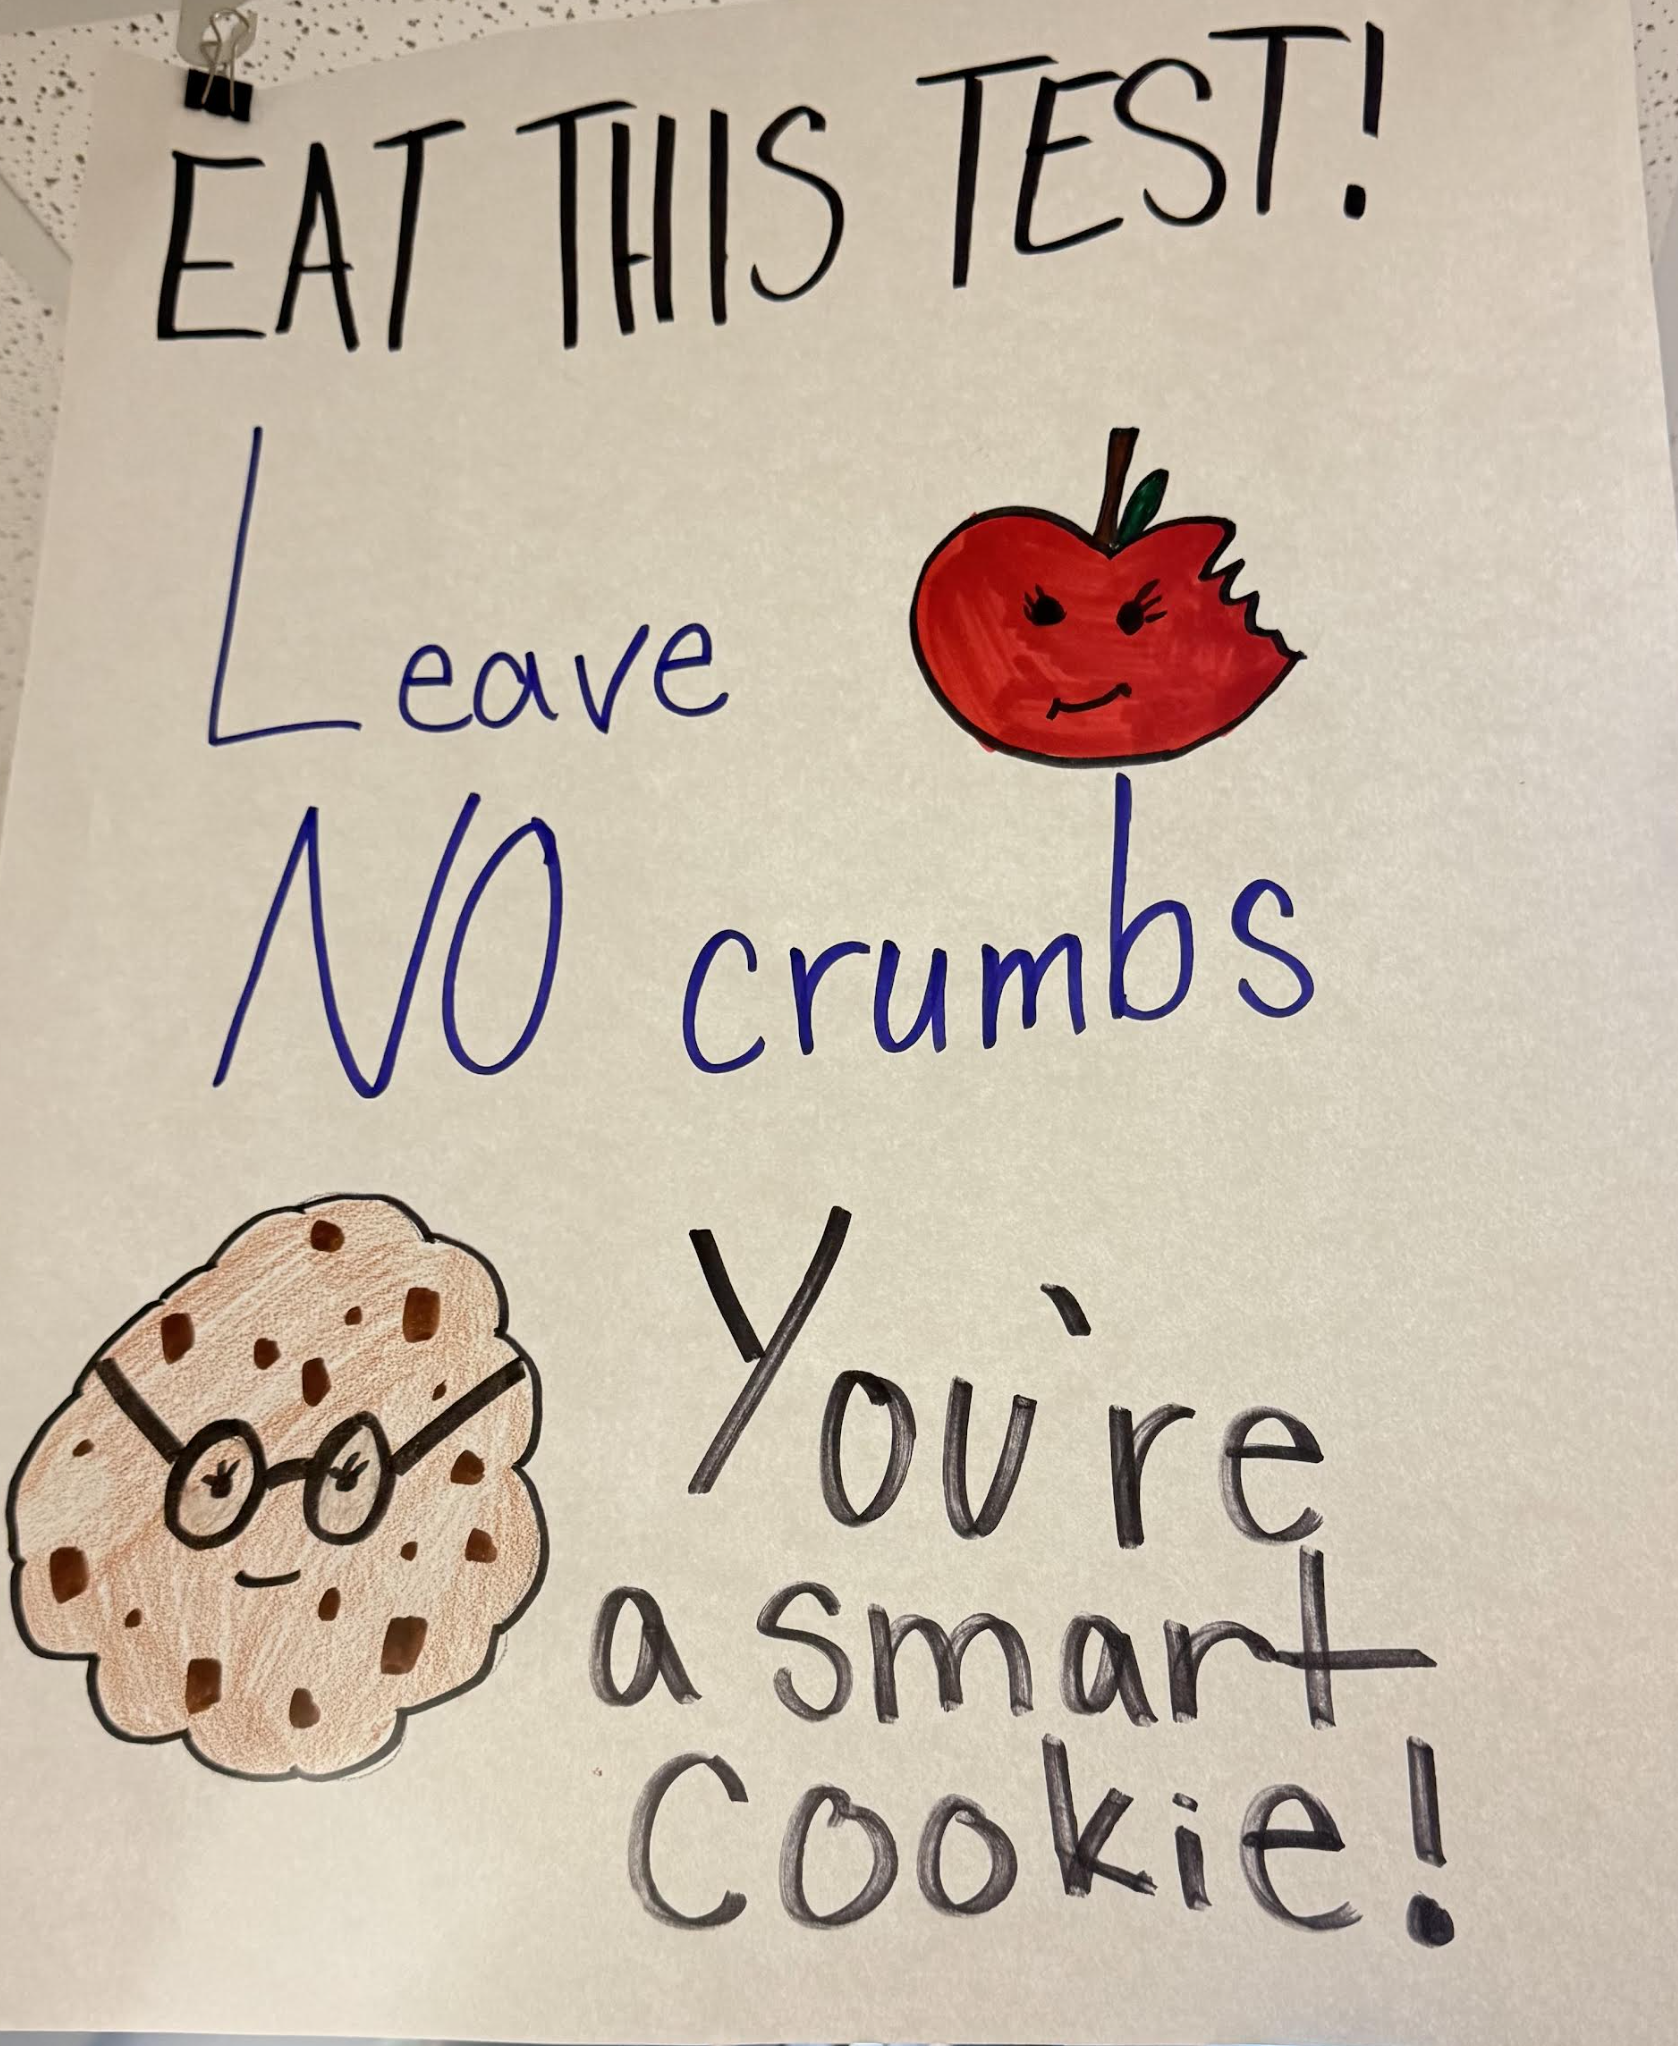 EAT THIS TEST!
Leave
NO crumbs
You're
a smart
Cookie!